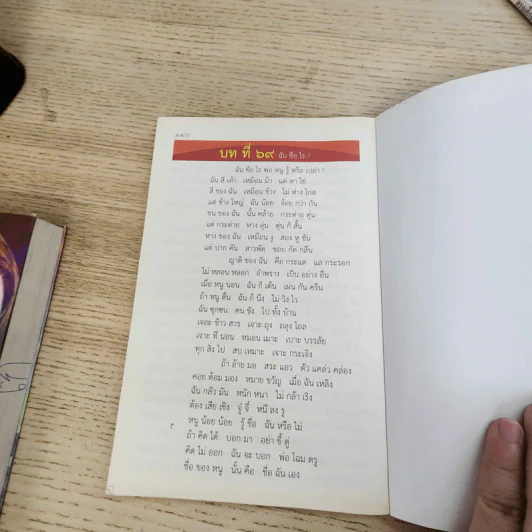 บท ที่ ๖๙ ฉัน ชื่อ ไร ?
ฉัน ชื่อ ไร พ่อ หนู รู้ หรือ เปล่า ?
ฉัน สี เทา เหมือน มิ่ว แต่ หา ใช่
สี ของ ฉัน เหมือน ช้าง ไม่ ห่าง ไกล
แต่ ช้าง ใหญ่ ฉัน น้อย จ้อย กว่า กัน
ขน ของ ฉัน นั้น คล้าย กระต่าย ตุ่น
แต่ กระต่าย หาง ลุ่น ตุ่น ก็ สั้น
หาง ของ ฉัน เหมือน งู สอง หู ชัน
แต่ ปาก คัน สารพัด ชอบ กัด กลืน
ญาติ ของ ฉัน คือ กระแต แล กระรอก
ไม่ หลอน หลอก อำพราง เป็น อย่าง อื่น
เมื่อ หนู นอน ฉัน ก็ เต้น เผ่น กัน ครืน
ถ้า หนู ตื่น ฉัน ก็ นิ่ง ไม่ วิ่ง ไว
ฉัน ซุกซน คน ชัง ไป ทั้ง บ้าน
เจอะ ข้าว สาร เจาะ ถุง ถลุง ไถล
เจาะ ที่ นอน หมอน เมาะ เบาะ บรรลัย
ทุก สิ่ง ไป สบ เหมาะ เจาะ กระเจิง
ถ้า อ้าย มอ สระ แอว ตัว แคล่ว คล่อง
คอย ด้อม มอง หมาย ขวัญ เมื่อ ฉัน เหลิง
ฉัน กลัว มัน หนัก หนา ไม่ กล้า เริง
ต้อง เสีย เชิง จู๋ จี๋ หนี ลง รู
หนู น้อย น้อย รู้ ชื่อ ฉัน หรือ ไม่
ถ้า คิด ได้ บอก มา อย่า ขี้ ตู่
คิด ไม่ ออก ฉัน จะ บอก พ่อ โฉม ตรู
ชื่อ ของ หนู นั้น คือ ชื่อ ฉัน เอง